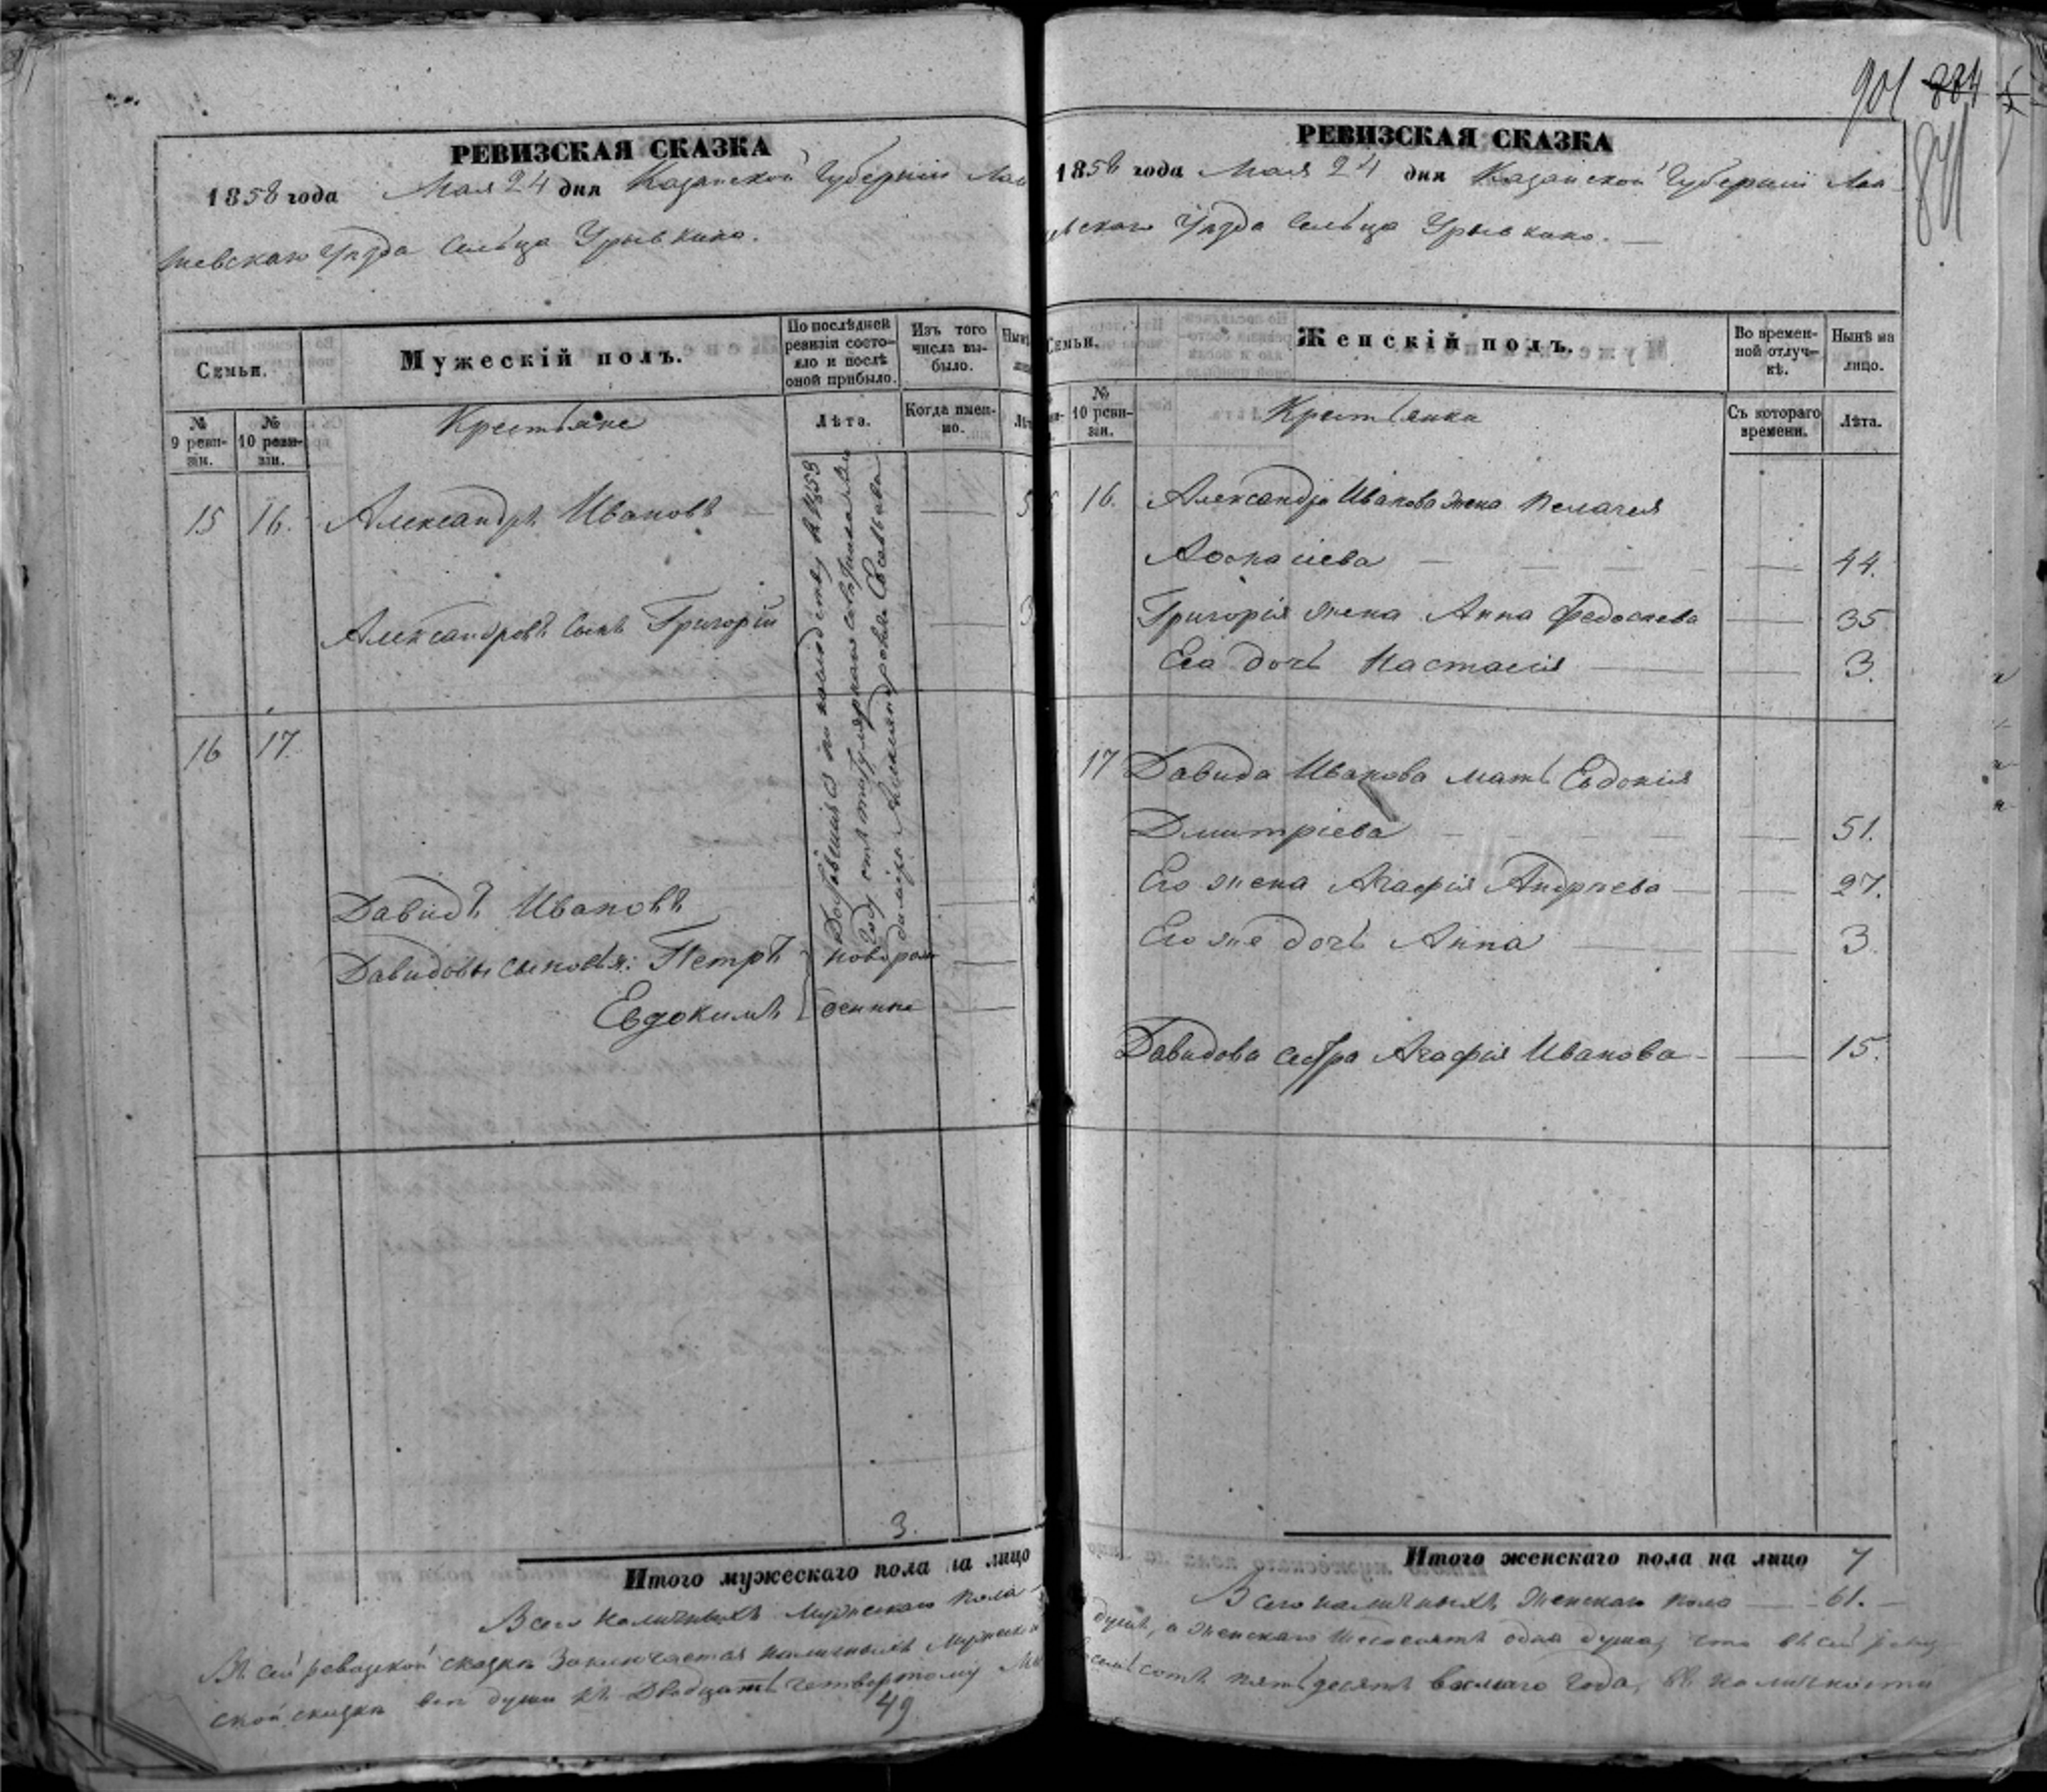 901 884
841
РЕВИЗСКАЯ СКАЗКА
1858 года Мая 24 дня Казанской Губерніи Лаи
шевскаго Уѣзда Сельца Урывкино.
Семьи.
Мужескій полъ.
По послѣдней ревизіи состояло и послѣ оной прибыло.
Изъ того числа выбыло.
№ 9 ревизіи.
№ 10 ревизіи.
Крестьяне
Лѣта.
Когда именно.
15 16. Александръ Ивановъ
Александровъ сынъ Григорій
16 17.
Давидъ Ивановъ
Давидовы сыновья: Петръ новорож
Евдокимъ денные
Доставшіеся по наследству въ 1853
году отъ титулярнаго советника
3.
Итого мужескаго пола на лицо
Всего наличныхъ мужескаго пола
Въ сей ревизской сказкѣ заключается наличныхъ мужеска
ской сказкѣ все души къ двадцать четвертому Ма
49
РЕВИЗСКАЯ СКАЗКА
1858 года Мая 24 дня Казанской Губерніи Лаи
шевскаго Уѣзда Сельца Урывкино.
Семьи.
Женскій полъ.
Во временной отлучкѣ.
Нынѣ на лицо.
№ 10 ревизіи.
Крестьянки
Съ котораго времени.
Лѣта.
16. Александра Иванова жена Пелагея
Афонасіева 44.
Григорія жена Анна Федосеева 35
Его дочь Настасія 3.
17 Давида Иванова мать Евдокія
Дмитріева 51.
Его жена Агафія Андреева 27.
Его же дочь Анна 3.
Давидова сестра Агафія Иванова 15.
Итого женскаго пола на лицо 7
Всего наличныхъ женскаго пола 61.
душъ, а женскаго шестьдесятъ одна душа, что въ сей ревиз
восемьсотъ пятьдесятъ восмаго года, въ наличности